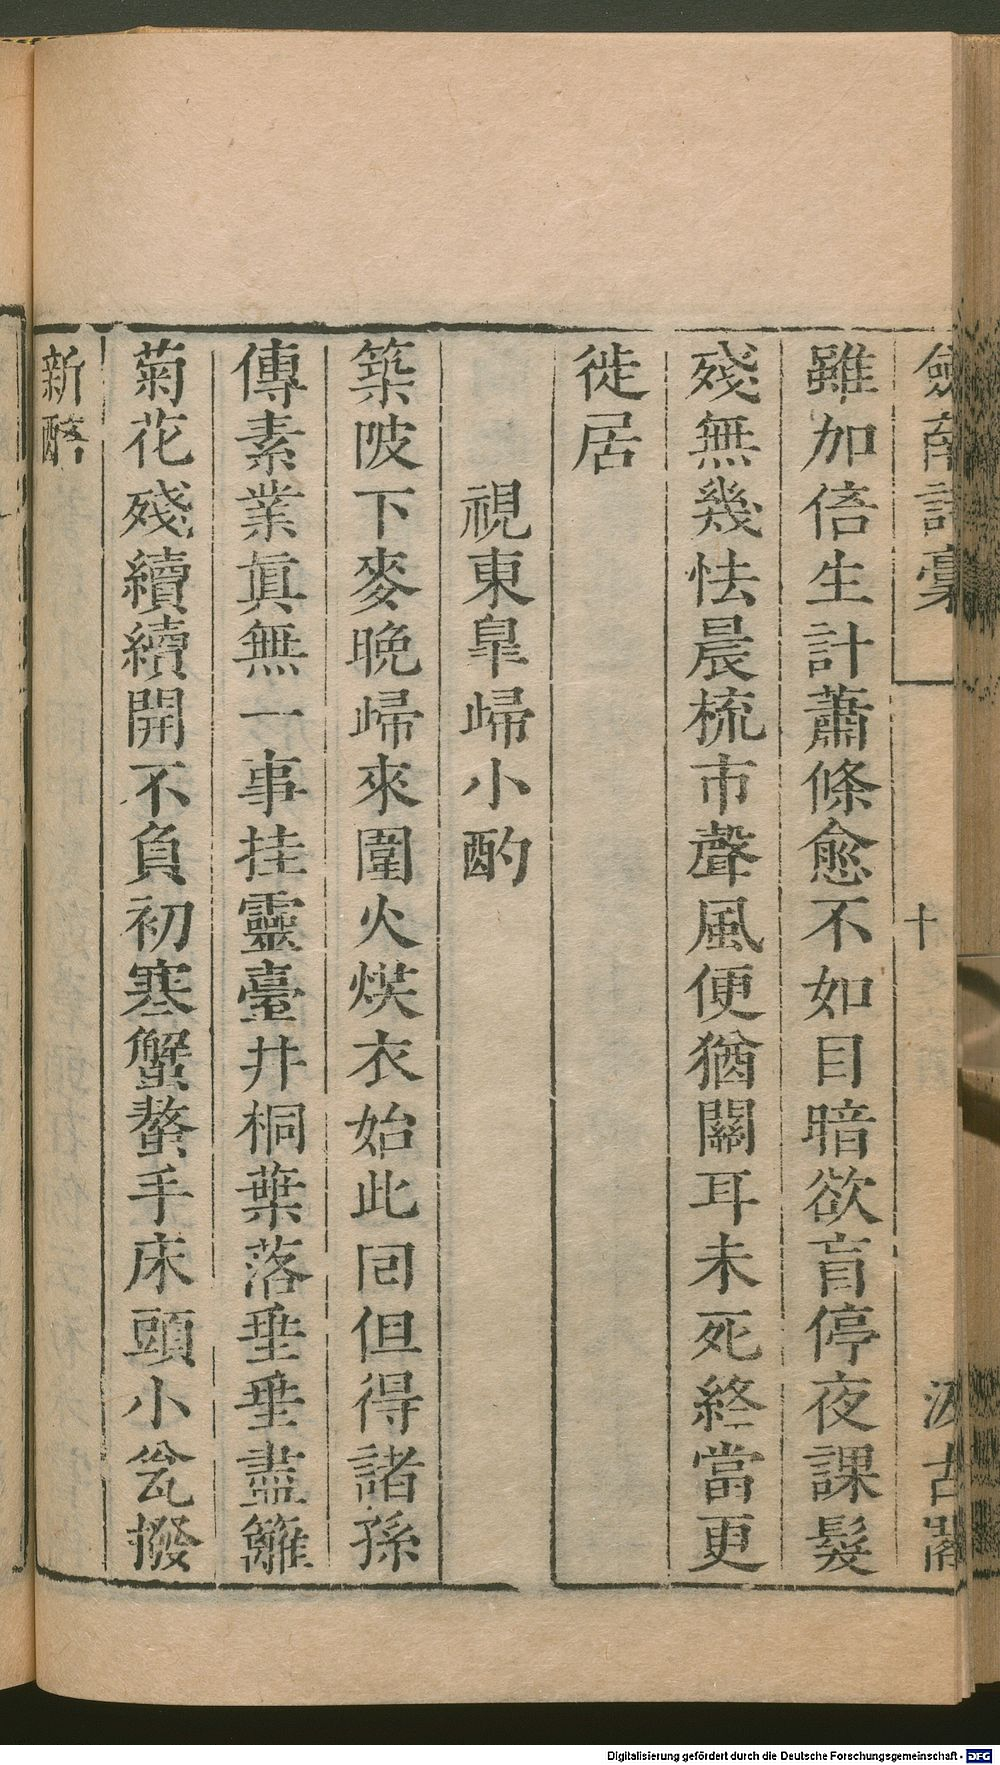 劒南詩稾
十
汲古閣
雖加倍生計蕭條愈不如目暗欲盲停夜課髮
殘無幾怯晨梳市聲風便猶關耳未死終當更
徙居
視東臯歸小酌
築陂下麥晚歸來圍火熯衣始此囘但得諸孫
傳素業眞無一事挂靈臺井桐葉落垂垂盡籬
菊花殘續續開不負初寒蟹螯手床頭小瓮撥
新醅
Digitalisierung gefördert durch die Deutsche Forschungsgemeinschaft - DFG